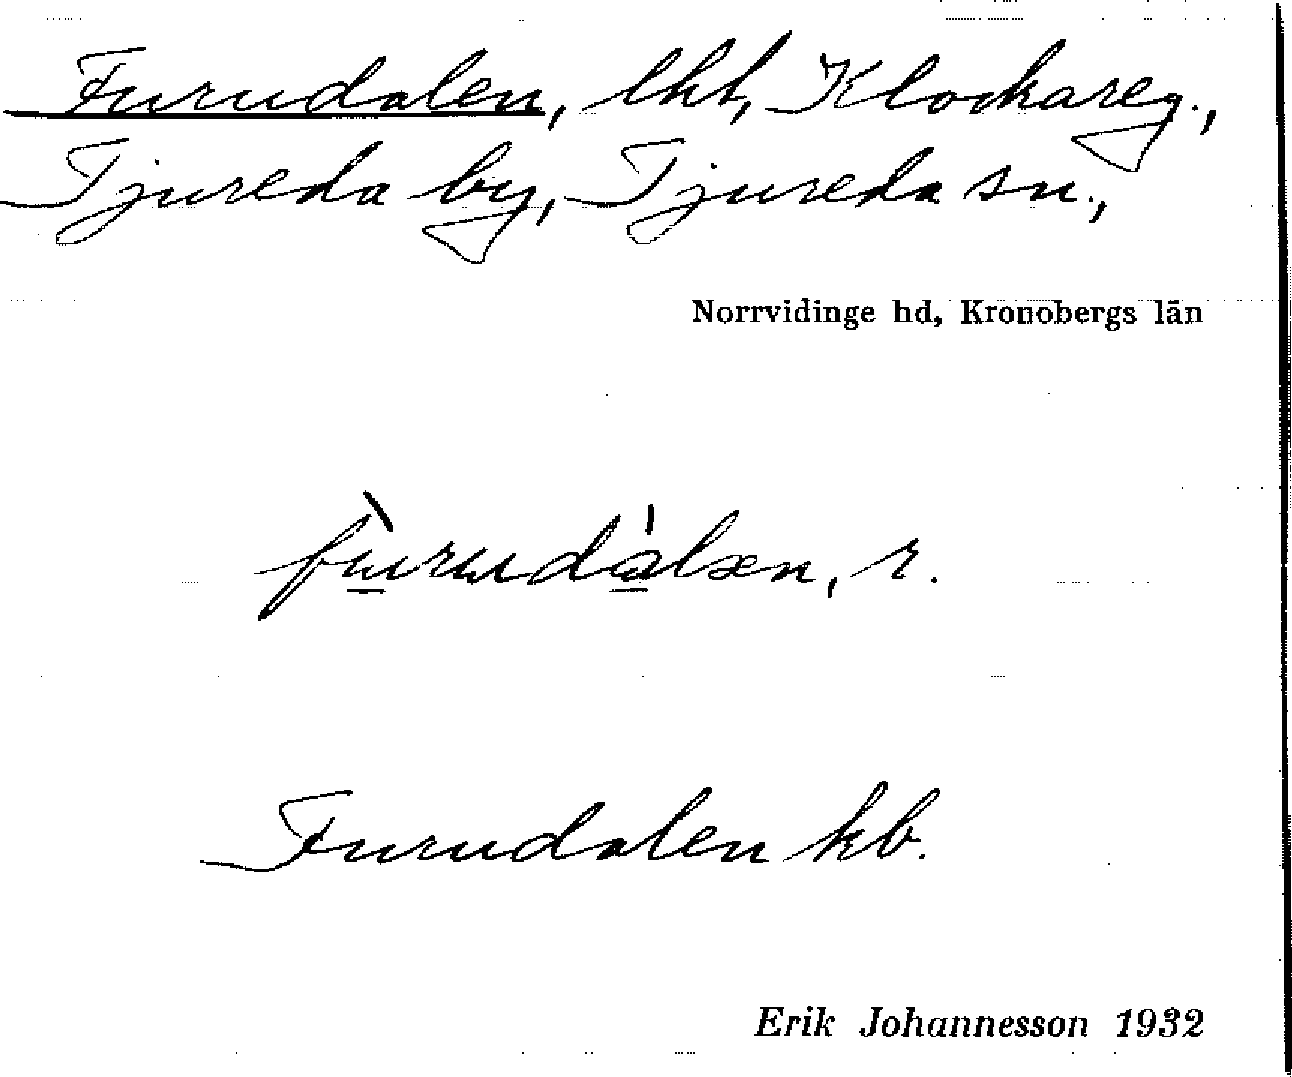 Furudalen, lht, Klockareg.,
Tjureda by, Tjureda sn.,
Norrvidinge hd, Kronobergs län
fù̠rudá̠læn, r.
Furudalen kb.
Erik Johannesson 1932